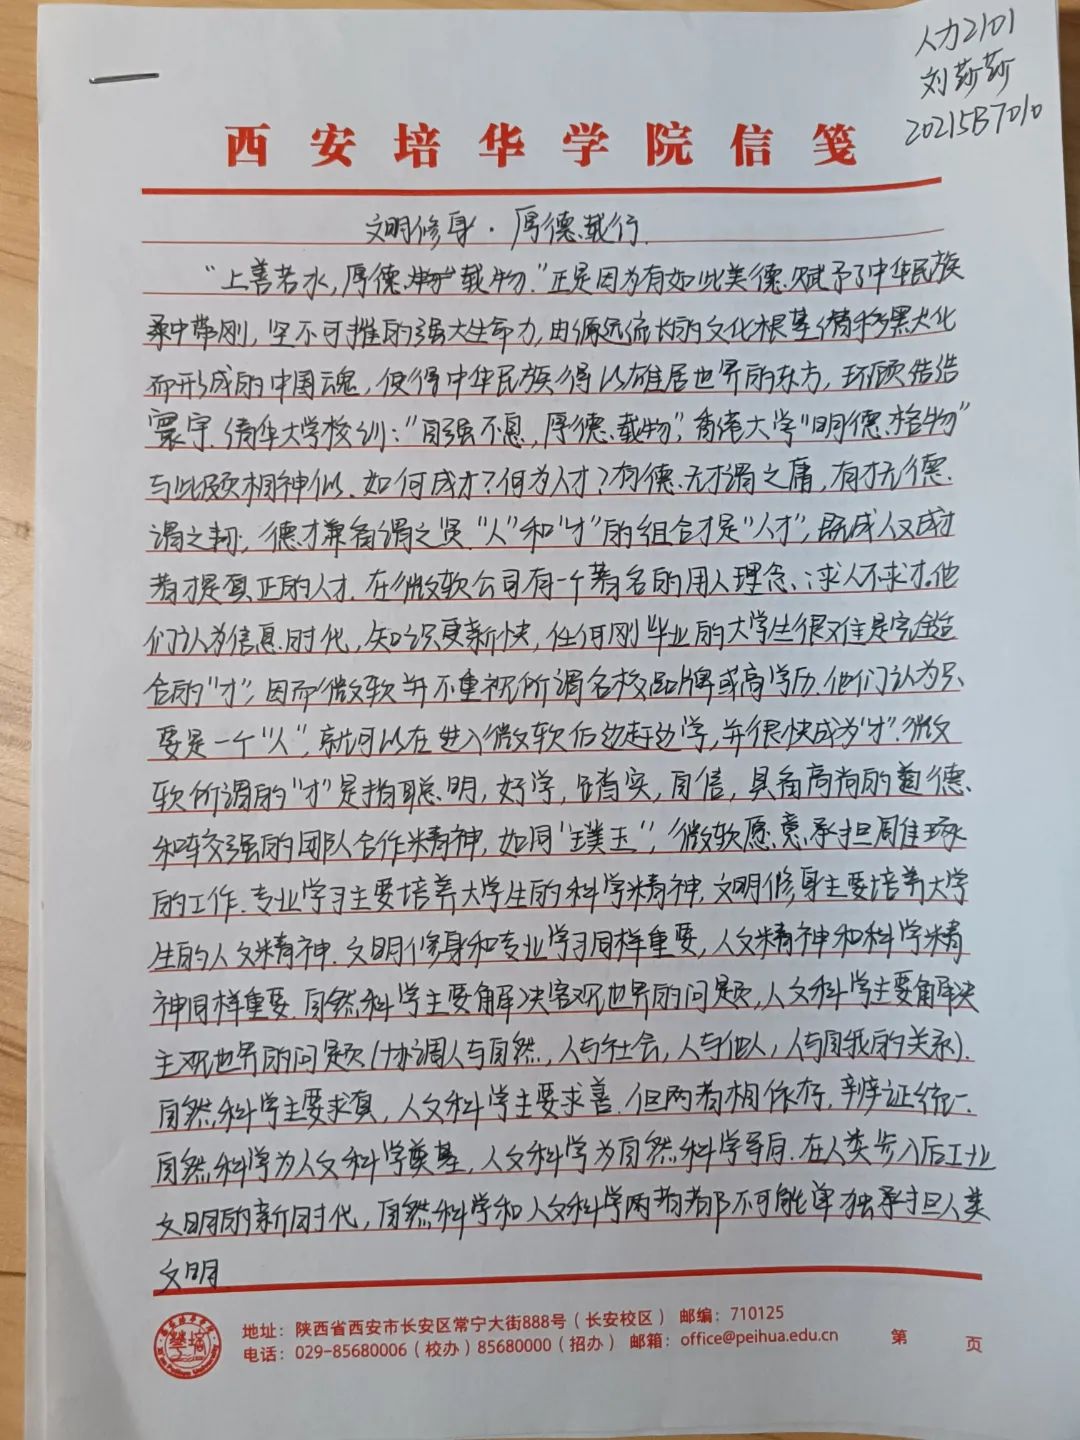 人力2101
刘莎莎
20215B7010
西安培华学院信笺
文明修身·厚德载行.
“上善若水,厚德载物.”正是因为有如此美德.赋予了中华民族
柔中带刚,坚不可摧的强大生命力,由源远流长的文化根基潜移默化
而形成的中国魂,使得中华民族得以雄居世界的东方,环顾浩浩
寰宇.清华大学校训:“自强不息,厚德载物”,香港大学“明德格物”
与此颇相神似.如何成才?何为人才?有德无才谓之庸,有才无德
谓之 ;德才兼备谓之贤.“人”和“才”的组合才是“人才”,既成人又成才
者才是真正的人才.在微软公司有一个著名的用人理念:求人不求才。他
们认为信息时代,知识更新快,任何刚毕业的大学生很难是完全适
合的“才”,因而微软并不重视所谓名校品牌或高学历.他们认为只
要是一个“人”,就可以在进入微软后边赶边学,并很快成为“才”.微
软所谓的“才”是指聪明,好学,踏实,自信,具备高尚的道德
和较强的团队合作精神,如同“璞玉”,微软愿意承担 琢
的工作.专业学习主要培养大学生的科学精神,文明修身主要培养大学
生的人文精神.文明修身和专业学习同样重要,人文精神和科学精
神同样重要.自然科学主要解决客观世界的问题,人文科学主要解决
主观世界的问题(协调人与自然,人与社会,人与他人,人与自我的关系).
自然科学主要求真,人文科学主要求善.但两者相依存,辩证统一.
自然科学为人文科学奠基,人文科学为自然科学导向.在人类步入后工业
文明的新时代,自然科学和人文科学两者都不可能单独承担人类
文明
地址：陕西省西安市长安区常宁大街888号（长安校区） 邮编：710125
电话：029-85680006（校办）85680000（招办） 邮箱：office@peihua.edu.cn
第 页